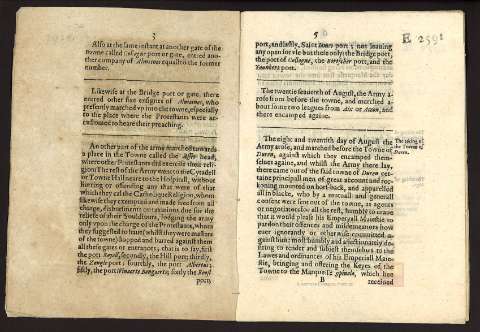 3
Also at the same instant at another gate of the
towne called Collogne port or gate, entred ano-
ther company of Almanes equall to the former
number.
Likewise at the Bridge port or gate, there
entred other five ensignes of Almanes, who
presently marched up into the towne, especially
to the place where the Protestants were ac-
customed to heare their preaching.
An other part of the army marched towards
a place in the Towne called the
where the Protestants did exercise their reli-
gion: The rest of the Army went to the Cytadell
or Towne Hill neere to the hospitall, without
hurting or offending any that were of that
which they call the Catholique Religion, whom
likewise they exempted and made free from all
charge, disbursement or contributions due for the
reliefe of their Souldiours, lodging the army
only upon the charge of the Protestants, whom
they suppressed so hard: whilst they were masters
of the towne stopped and barred against them
all these gates or entrances, that is to say, first
the port Royall, secondly, the Hill port; thirdly,
the port; fourthly, the port Albertus;
fifthly, the port sixtly the
port,
5
E 2591
port, and lastly, Saint Iones port; not leaving
any open for use but these only: the Bridge port,
the port of Collogne, the port, and the
port.
The twentie seaventh of August, the Army a-
rose from before the towne, and marched a-
bout some two leagues from Aix or Acon, and
there encamped againe.
The eight and twentith day of August the
Army arose, and marched before the Towne of
Duren, against which they encamped them-
selves againe, and whilst the Army there lay,
there came out of the said towne of Duren cer-
taine principall men of great account and rec-
koning mounted on hors-back, and apparelled
all in blacke, who by a mutuall and generall
consent were sent out of the towne, as agents
or negotiators for all the rest, humbly to crave
that it would please his Emperiall Maiestie to
pardon their offences and misdemeanors how-
ever ignorantly or otherwise committed a-
gainst him: most humbly and affectionately de-
siring to render and subiect themselves to the
Lawes and ordinances of his Emperiall Maie-
stie, bringing and offering the Keyes of the
Towne to the Marquesse Spinola, which hee
B
received
The taking of
the Towne of
Duren.